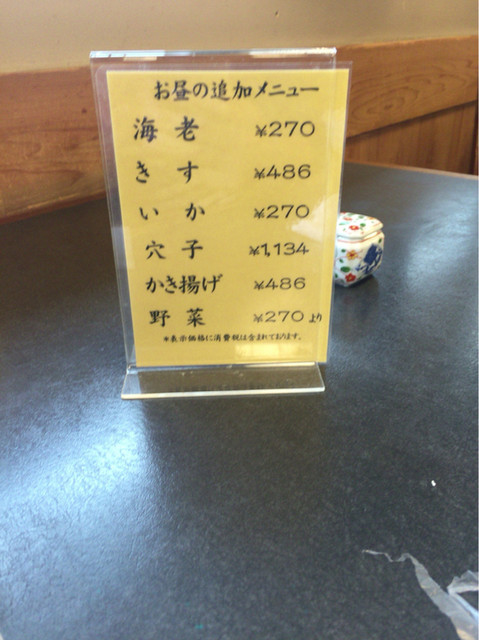 お昼の追加メニュー
海老 ¥270
きす ¥486
いか ¥270
穴子 ¥1,134
かき揚げ ¥486
野菜 ¥270より
*表示価格に消費税は含まれております。